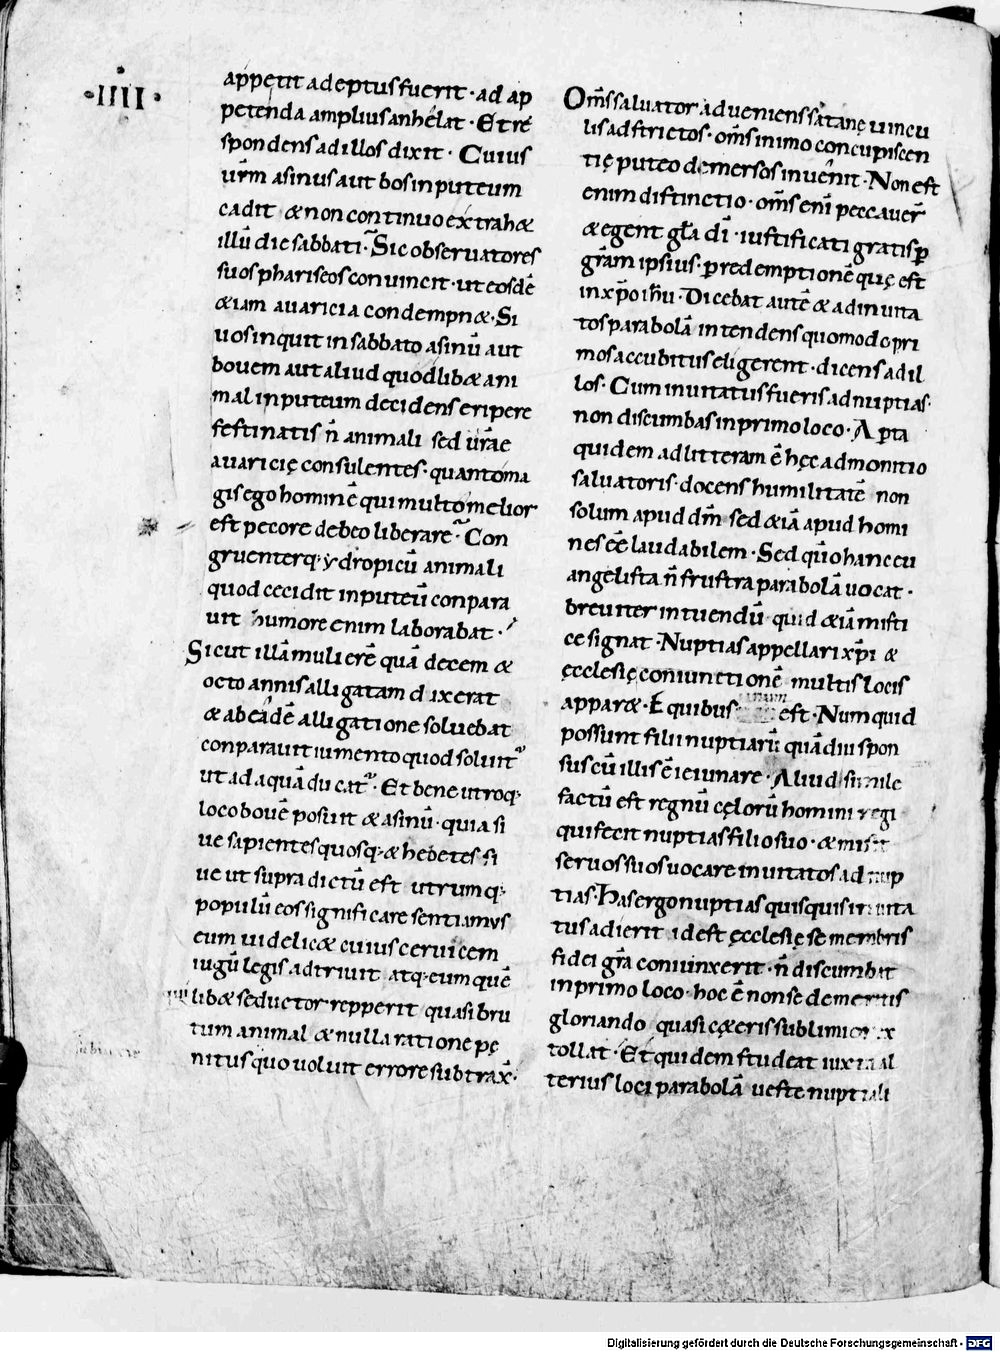 ·IIII·
appetit adeptus fuerit · ad ap
petenda amplius anhelat · Et re
spondens ad illos dixit · Cuius
urm̄ asinus aut bos in puteum
cadit & non continuo extrah&
illū die sabbati · Sic observatores
suos phariseos convincit · ut eosdē
&iam avaricia condempn& · Si
vos inquit in sabbato asinū aut
bovem aut aliud quodlib& ani
mal in puteum decidens eripere
festinatis n̄ animali sed ur̄ae
avaricię consulentes · quanto ma
gis ego hominē qui multo melior
est pecore debeo liberare · Con
gruenter q; ydropicū animali
quod cecidit in puteū conpara
vit humore enim laborabat ·
Sicut illā mulierē quā decem &
octo annis alligatam dixerat
& ab eadē alligatione solvebat
conparavit iumento quod solvit᷑
ut ad aquā ducat᷑ · Et bene utroq;
loco bovē posuit & asinū · quia si
ve sapientes quosq; & hebetes si
ve ut supra dictū est utrumq;
populū eos significare sentiamus
eum videlic& cuius cervicem
iugū legis adtrivit atq; eum quē
lib& seductor repperit quasi bru
tum animal & nulla ratione pę
nitus quo voluit errore subtrax̄ ·
Om̄s salvator adveniens satanę vincu
lis adstrictos · om̄s in imo concupiscen
tię puteo demersos invenit · Non est
enim distinctio · om̄s enī peccaver̄
& egent gl̄a dī · iustificati gratis p̄
gr̄am ipsius · p̄ redemptionē quę est
in xp̄o ih̄u · Dicebat autē & ad invita
tos parabolā intendens quomodo pri
mos accubitus eligerent · dicens ad il
los · Cum invitatus fueris ad nuptias ·
non discumbas in primo loco · Ap̄ta
quidem ad litteram ē hęc admonitio
salvatoris · docens humilitatē non
solum apud dm̄ sed &iā apud homi
nes eē laudabilem · Sed qūo hanc eu
angelista n̄ frustra parabolā vocat ·
breviter intuendū quid &iā misti
ce signat · Nuptias appellari xp̄i &
ęcclesię coniunctionē multis locis
appar& · E quibus est · Numquid
possunt filii nuptiarū quādiu spon
sus cū illis ē ieiunare · Aliud simile
factū est regnū cęlorū homini regi
qui fecit nuptias filio suo · & misit
servos suos vocare invitatos ad nup
tias · Has ergo nuptias quisquis invita
tus adierit id est ęcclesię se membris
fidei gr̄a coniunxerit · n̄ discumbat
in primo loco · hoc ē non se de meritis
gloriando quasi c&eris sublimior ex
tollat · Et quidem studeat iuxta al
terius loci parabolā veste nuptiali
Digitalisierung gefördert durch die Deutsche Forschungsgemeinschaft - DFG